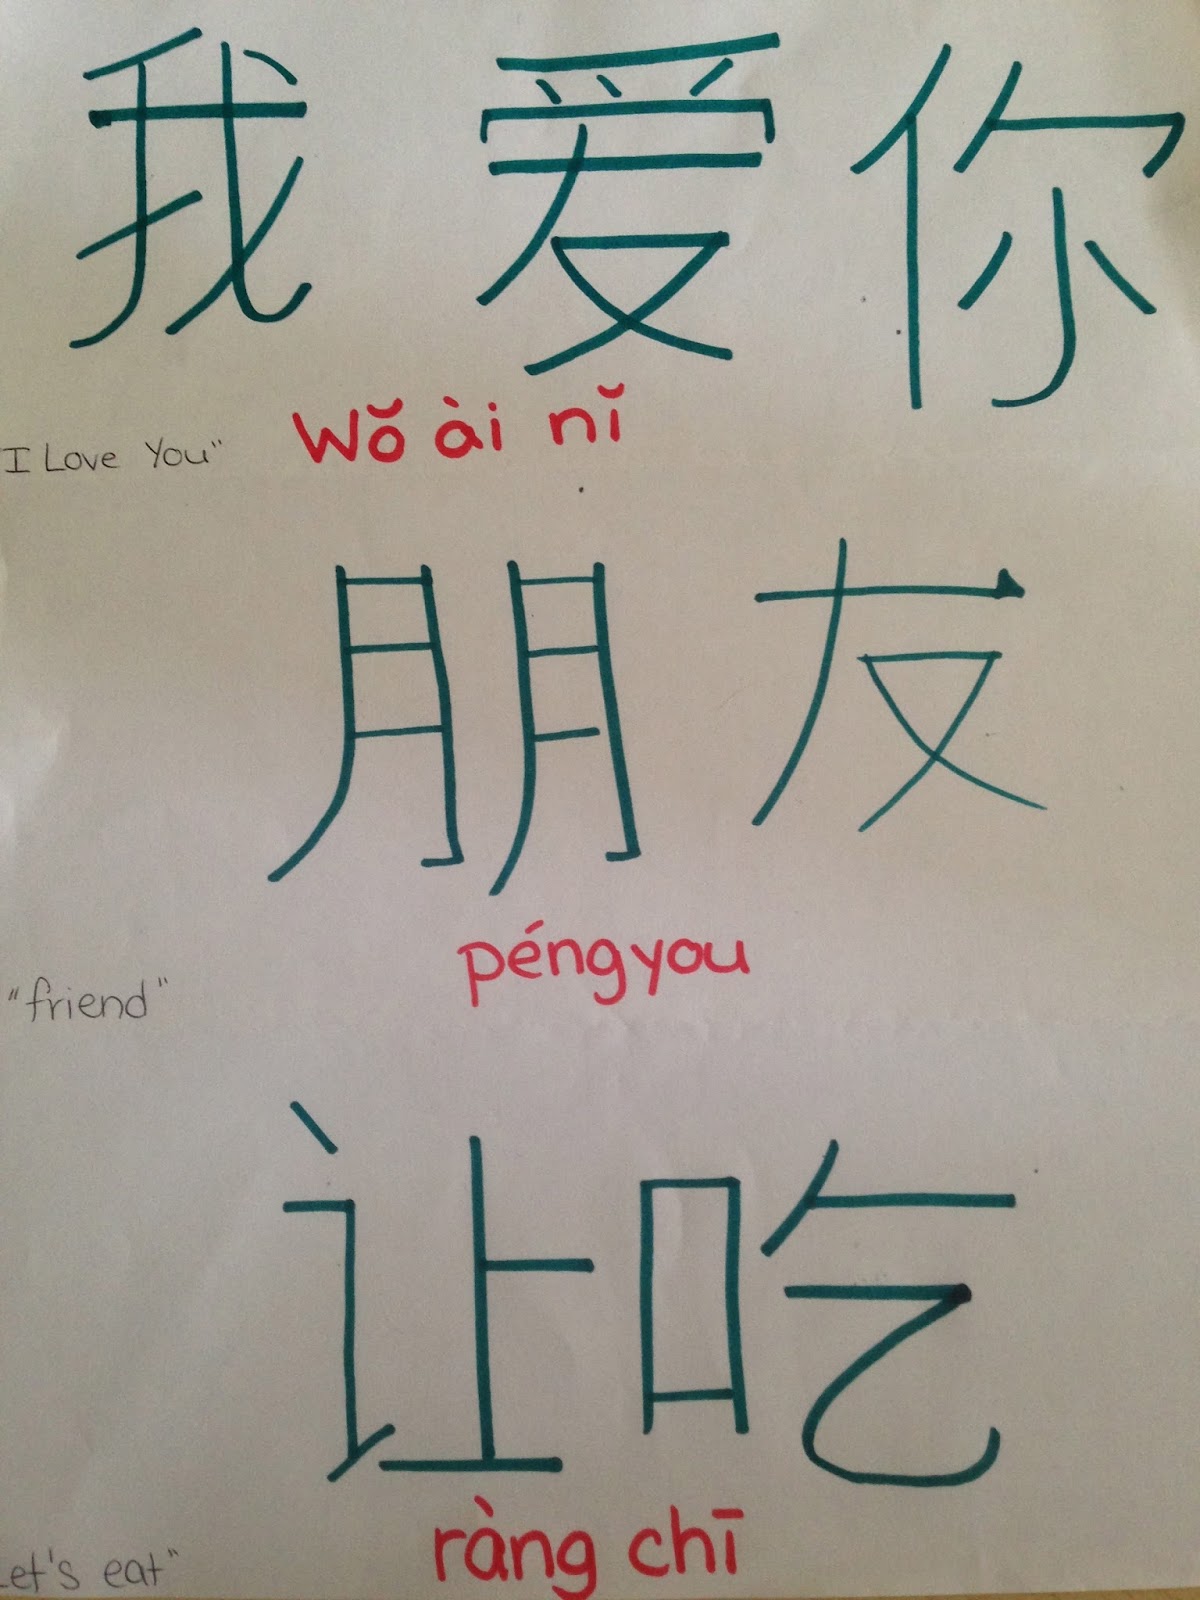 我爱你
"I Love You" Wŏ ài nĭ
朋友
péngyou
"friend"
让吃
ràng chī
Let's eat"